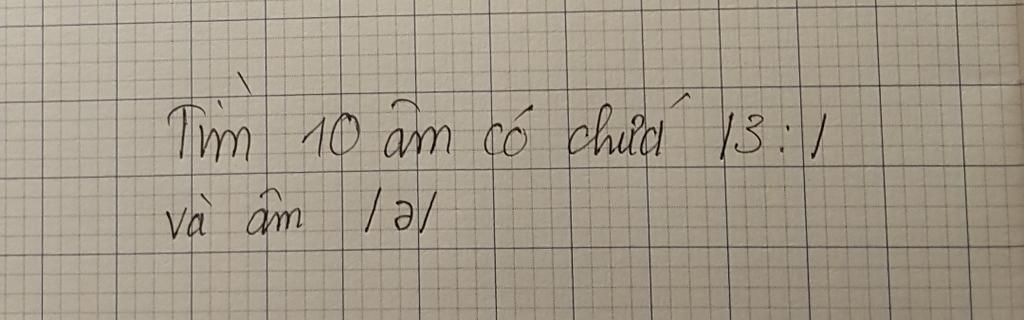 Tìm 10 âm có chứa /3:/
và âm /ə/